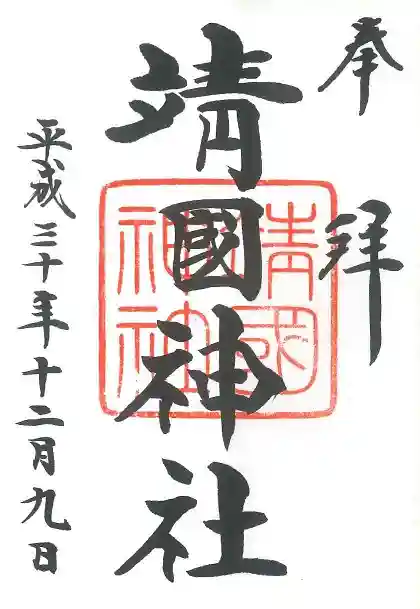 奉拝
靖國神社
靖國
神社
平成三十年十二月九日